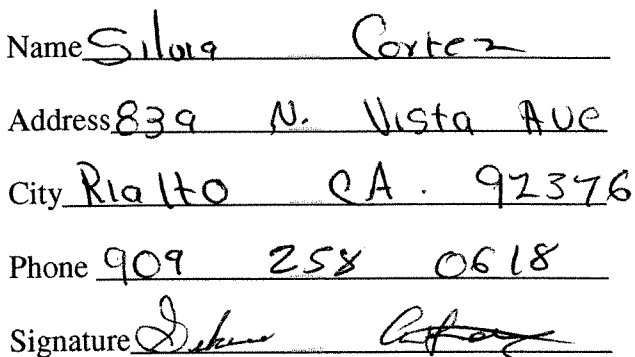 Name Silvia Cortez
Address 839 N. Vista Ave
City Rialto CA. 92376
Phone 909 258 0618
Signature